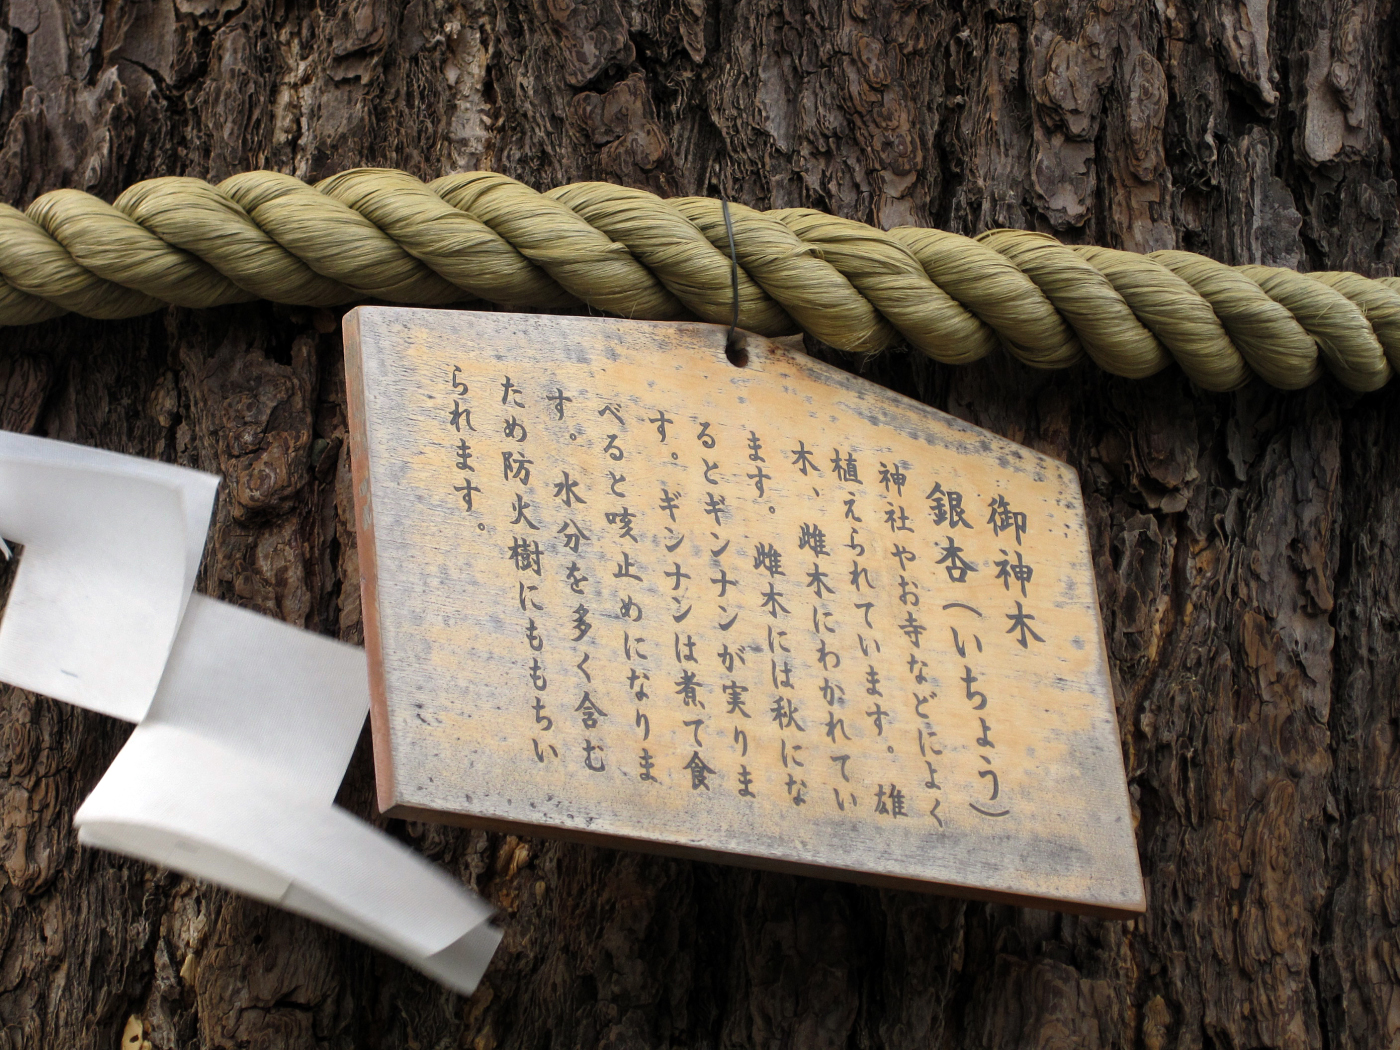 御神木
銀杏(いちょう)
神社やお寺などによく
植えられています。雄
木、雌木にわかれてい
ます。雌木には秋にな
るとギンナンが実りま
す。ギンナンは煮て食
べると咳止めになりま
す。水分を多く含む
ため防火樹にももちい
られます。